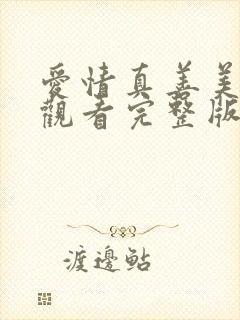 愛情真善美
觀看完整版
渡邊鮎